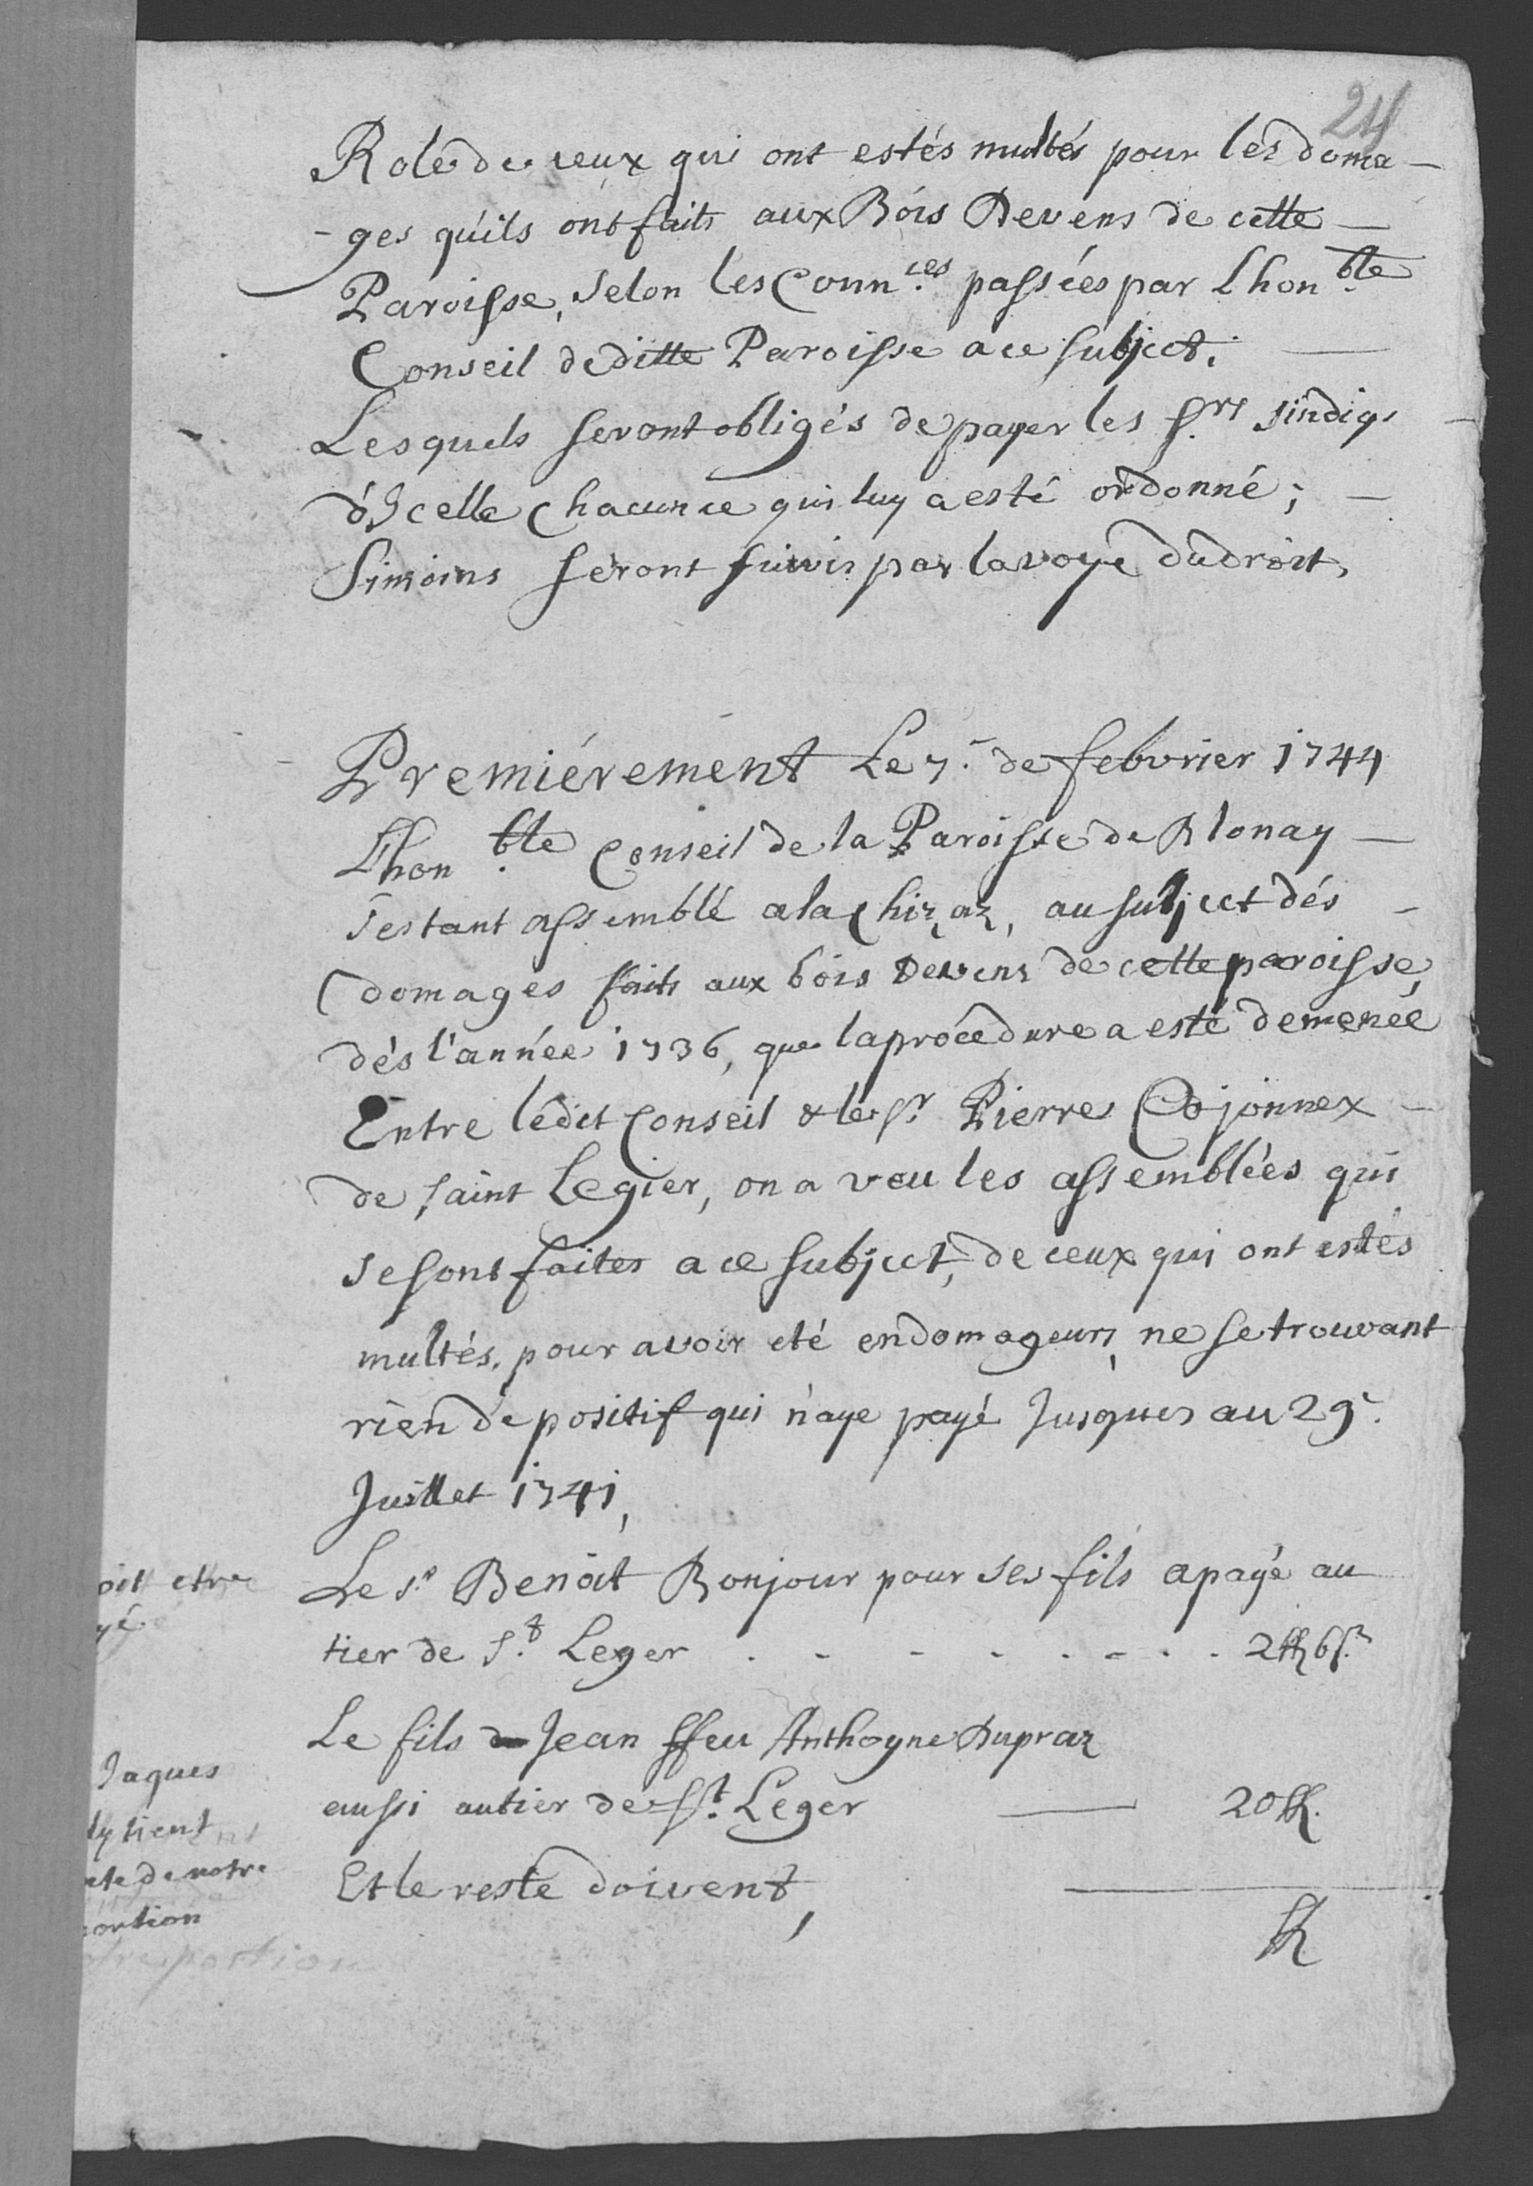 24
Role de ceux qui ont estés multés pour les doma-
-ges qu'ils ont faits aux Bois Devens de cette
Paroisse, selon les Conn.ces passées par Lhon.ble
Conseil de ditte Paroisse a ce subject.
Lesquels seront obligés de payer les S.rs Sindiqs
d'Icelle chacun ce qui luy a esté ordonné;
Simoins seront suivis par la voye du droit,
Premiérement Le 7.e de febvrier 1744
Lhon.ble Conseil de la Paroisse de Blonay
s'estant assemblé a la Chizaz, au subject dés
domages faits aux bois Devens de cette paroisse,
dés l'année 1736, que la procedure a esté demenée
Entre ledit Conseil & le Sr Pierre Cojonnex
de saint Legier, on a veu les assemblées qui
se sont faites a ce subject, de ceux qui ont estés
multés, pour avoir eté endomageurs, ne se trouvant
rien de positif qui n'aye payé Jusques au 29.e
Juillet 1741,
Le S.r Benoit Bonjour pour ses fils a payé au
tier de S.t Leger . . . . . . . . . 2 ff 6 s.
Le fils de Jean ffeu Anthoyne Dupraz
aussi au tier de S.t Leger 20 ff.
Et le reste doivent,
ff
oit etre
yé
Jaques
tient
de notre
portion
portion